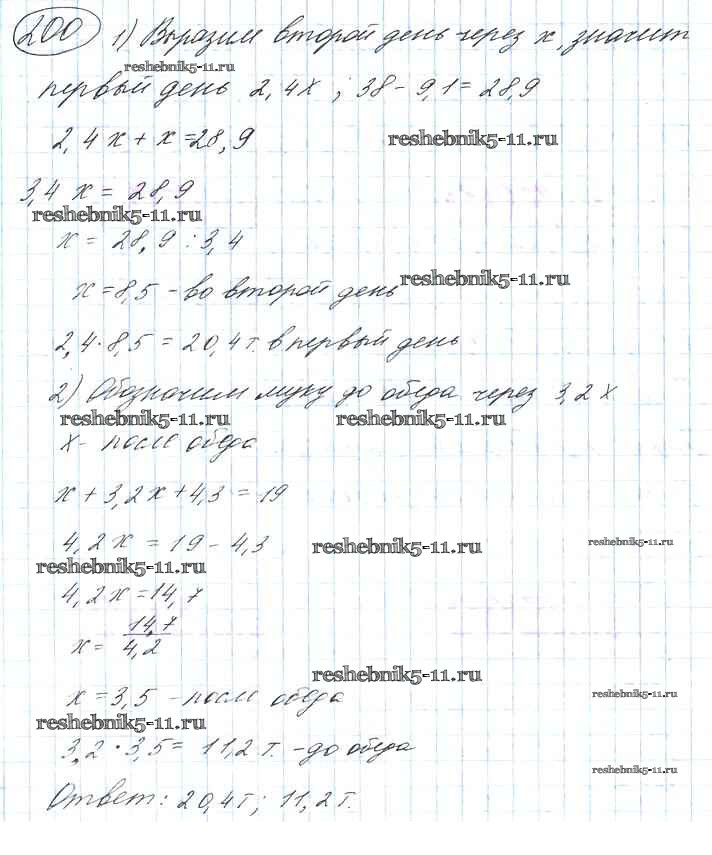 200 1) Выразим второй день через x, значит
reshebnik5-11.ru
первый день 2,4x ; 38 - 9,1 = 28,9
2,4x + x = 28,9
reshebnik5-11.ru
3,4 x = 28,9
reshebnik5-11.ru
x = 28,9 : 3,4
reshebnik5-11.ru
x = 8,5 - во второй день
2,4 · 8,5 = 20,4 т. в первый день
2) Обозначим муку до обеда через 3,2 x
reshebnik5-11.ru reshebnik5-11.ru
x - после обеда
x + 3,2x + 4,3 = 19
4,2x = 19 - 4,3
reshebnik5-11.ru reshebnik5-11.ru
reshebnik5-11.ru
4,2x = 14,7
x = 14,7 / 4,2
reshebnik5-11.ru
x = 3,5 - после обеда
reshebnik5-11.ru
reshebnik5-11.ru
3,2 · 3,5 = 11,2 т. - до обеда
reshebnik5-11.ru
Ответ: 20,4 т; 11,2 т.